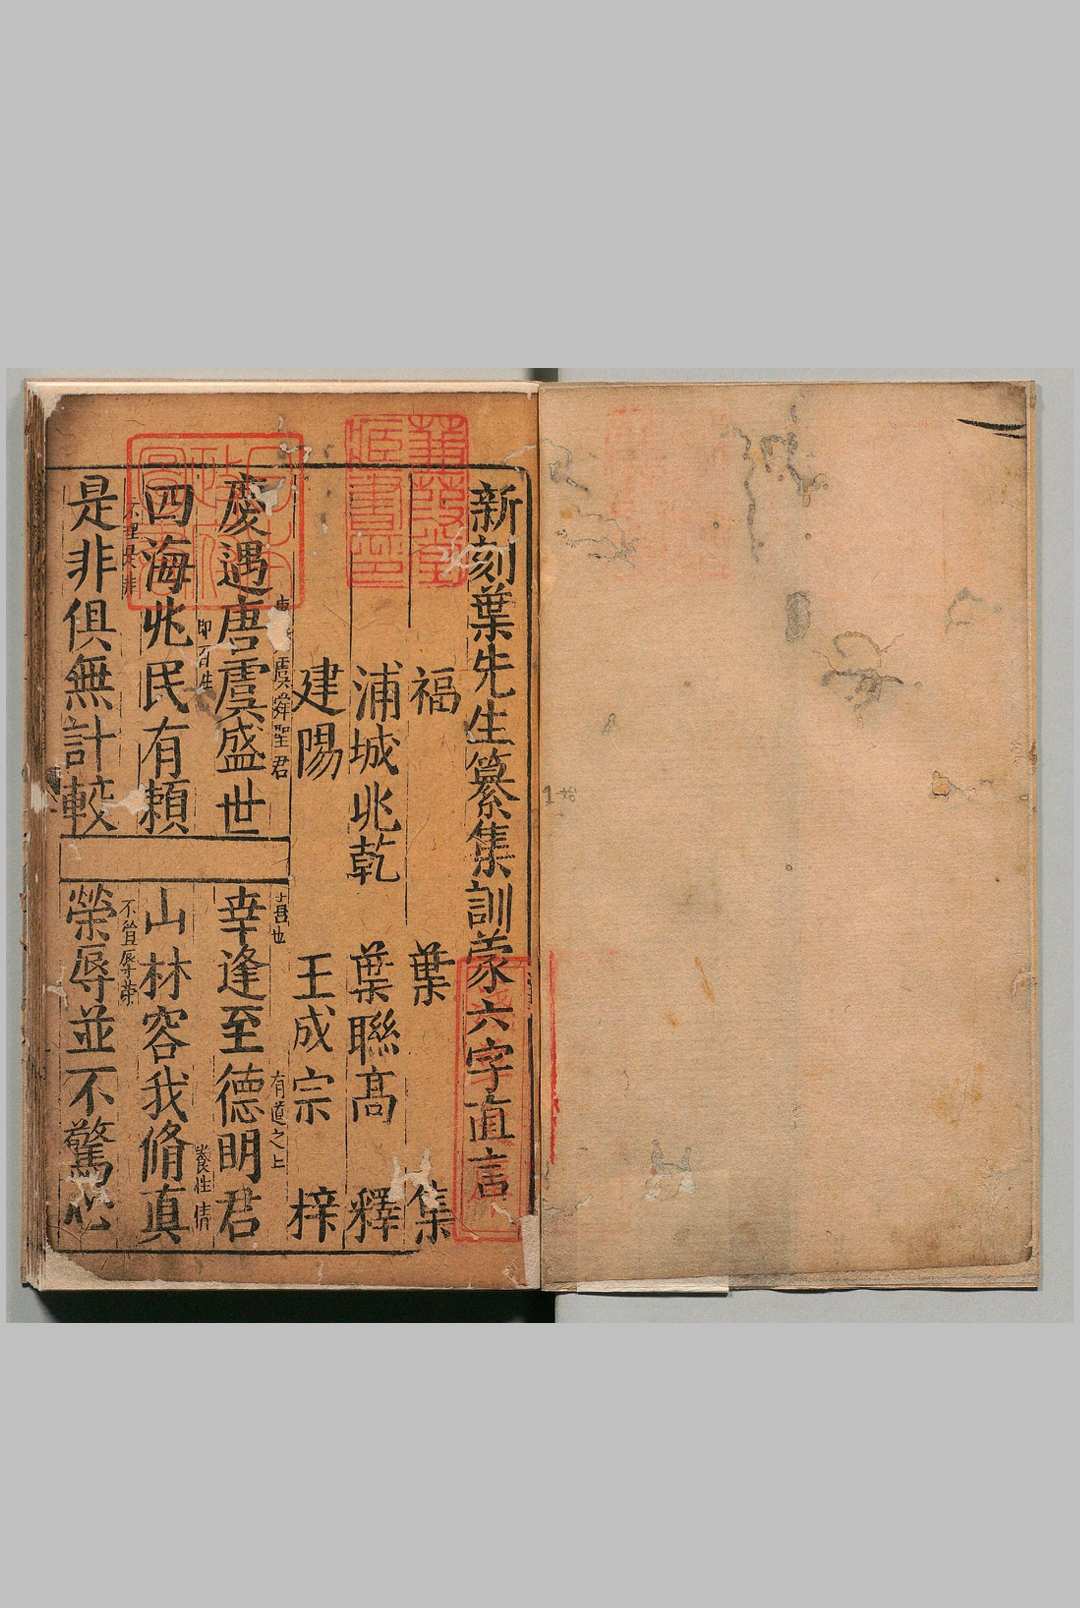 新刻葉先生纂集訓蒙六字直言
福 葉 集
浦城兆乾 葉聯髙 釋
建陽 王成宗 梓
慶遇唐虞盛世
虞舜聖君
幸逢至德明君
有道之上
四海兆民有賴
即百姓
山林容我脩真
養性情
是非俱無計較
不理是非
榮辱並不驚心
不管辱荣
藏書印